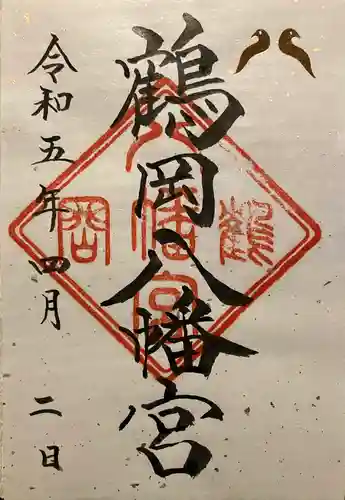 鶴岡八幡宮
令和五年四月二日
鶴
岡
八幡宮